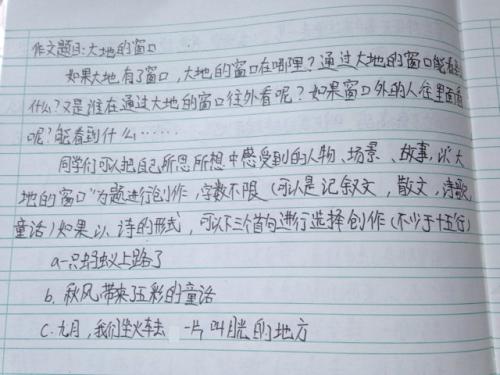 作文题目:大地的窗口
如果大地有了窗口,大地的窗口在哪里?通过大地的窗口能看到
什么?又是谁在通过大地的窗口往外看呢?如果窗口外的人往里面看
呢?能看到什么……
同学们可以把自己所思所想中感受到的人物、场景、故事,以“大
地的窗口”为题进行创作,字数不限(可以是记叙文,散文,诗歌
童话)如果以诗的形式,可以从三个首句进行选择创作(不少于十五行)
a一只蚂蚁上路了
b.秋风带来了五彩的童话
C.九月,我们坐火车去 一片叫 的地方